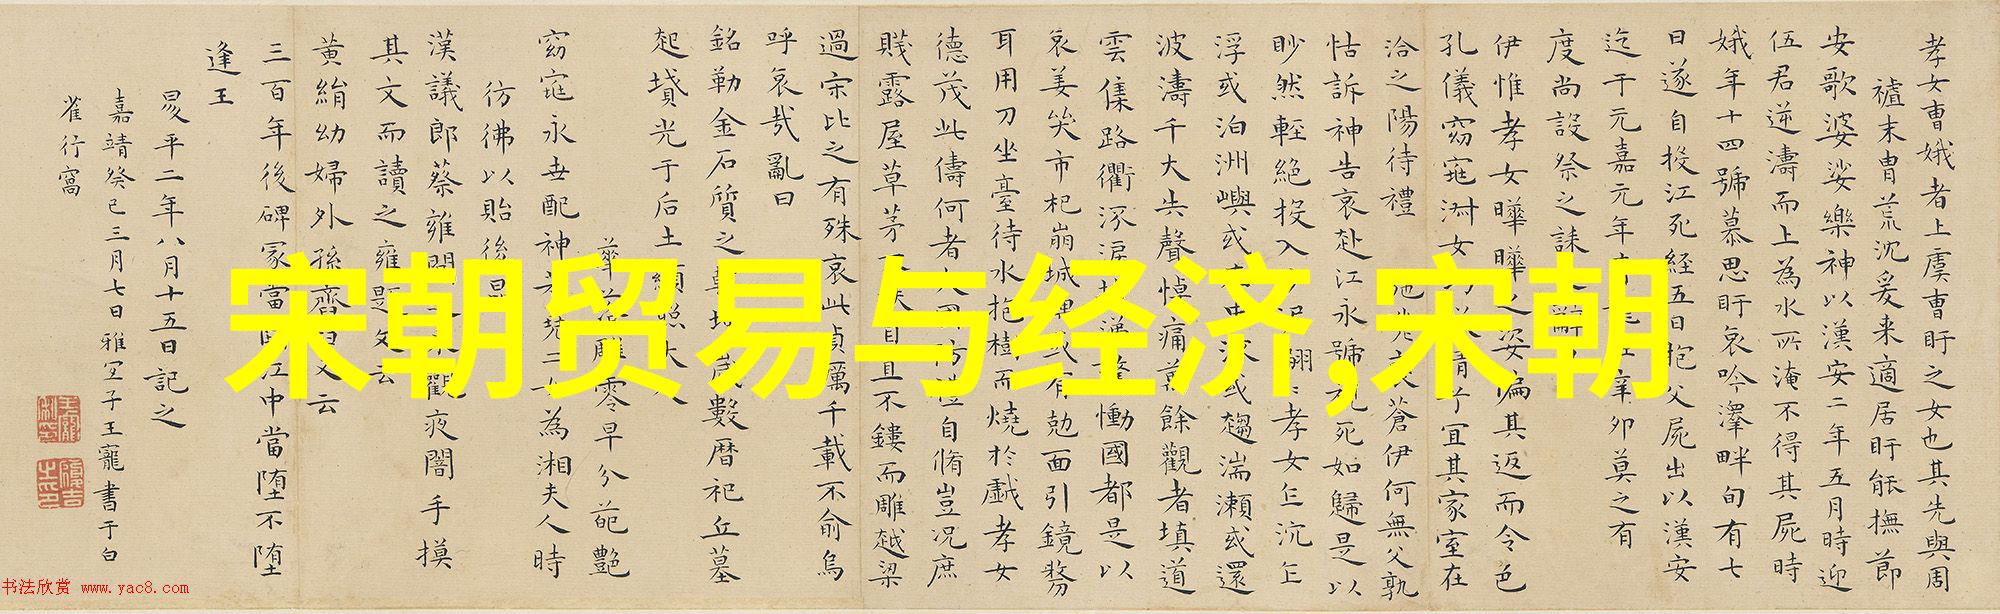 孝女曹娥者上虞曹盱之女也其先與周
禠末胄荒沈爰来適居盱能撫節
安歌婆娑樂神以漢安二年五月時迎
伍君逆濤而上為水所淹不得其屍時
娥年十四號慕思盱哀吟澤畔旬有七
日遂自投江死經五日抱父屍出以漢安
迄于元嘉元年龍在辛卯莫之有
度尚設祭之誄辭
伊惟孝女曄曄之姿偏其返而令色
孔儀窈窕淑女倩兮宜其家室在
洽之陽待禮蒼伊何無父孰
怙訴神告哀赴江永號死如歸是以
眇然輕絕投入泥翩〻孝女乍沉乍
浮或泊洲嶼或中流或趨湍瀬或還
波濤千夫失聲悼痛萬餘觀者填道
雲集路衢流淚慟國都是以
哀姜哭市杞崩城隅或有勊面引鏡剺
耳用刀坐臺待水抱樹而燒於戲孝女
德茂此儔何者大國防禮自脩豈況庶
賤露屋草茅不扶自直不鏤而雕越梁
過宋比之有殊哀此貞厲千載不渝烏
呼哀哉亂曰
銘勒金石質之乾坤歲數曆祀丘墓
起墳光于后土顯照夫人
華落雕零早分葩艷
窈窕永世配神若堯二女為湘夫人時
彷彿以貽後昆
漢議郎蔡雍聞之來觀夜闇手摸
其文而讀之雍題文云
黃絹幼婦外孫齏臼又云
三百年後碑冢當墮江中當墮不墮
逢王
昇平二年八月十五日記之
嘉靖癸巳三月七日雅宜子王寵書于白
雀行窩
宋朝贸易与经济,宋朝
书法欣赏 www.yac8.com